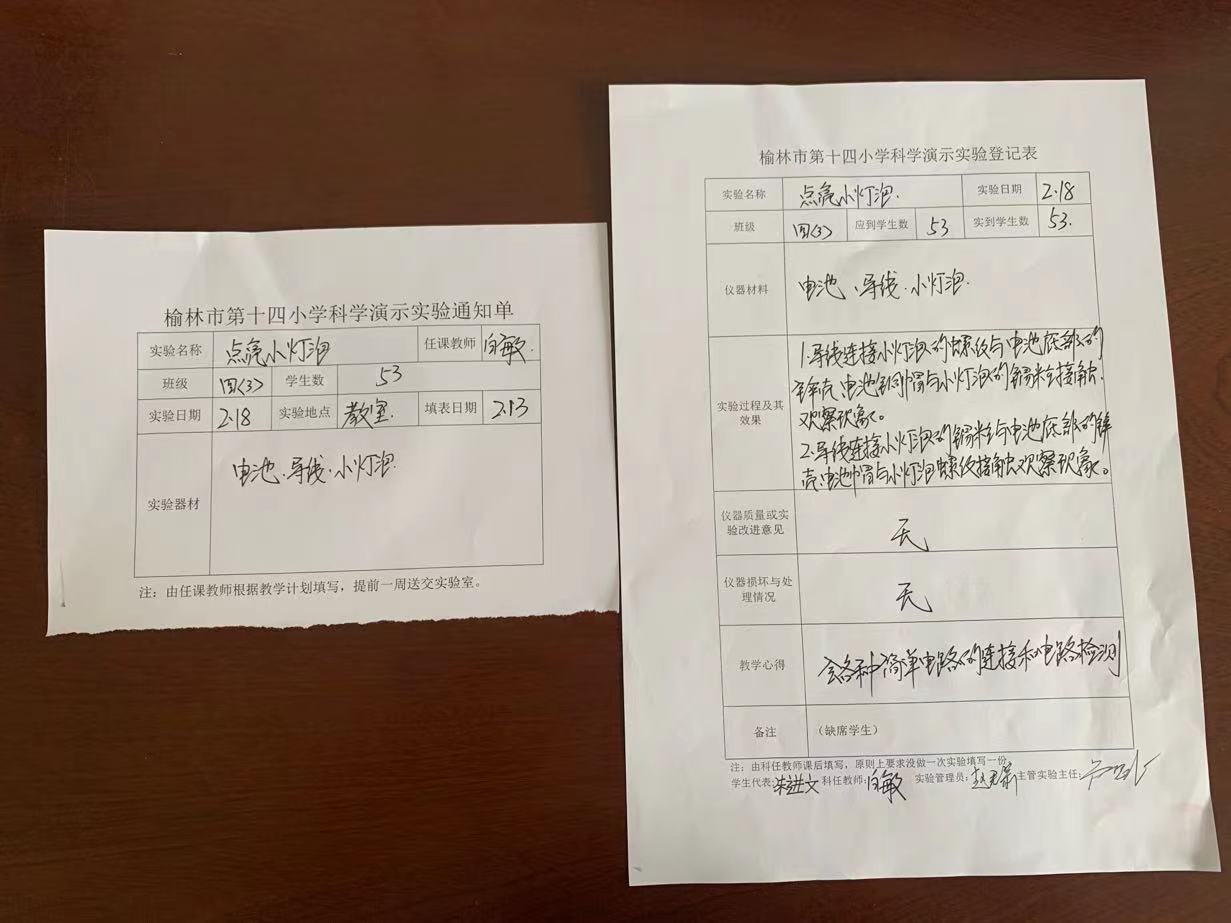 榆林市第十四小学科学演示实验通知单
实验名称 点亮小灯泡 任课教师 白敏.
班级 四<3> 学生数 53
实验日期 2.18 实验地点 教室. 填表日期 2.13
实验器材 电池.导线.小灯泡.
注：由任课教师根据教学计划填写，提前一周送交实验室。
榆林市第十四小学科学演示实验登记表
实验名称 点亮小灯泡. 实验日期 2.18
班级 四<3> 应到学生数 53 实到学生数 53.
仪器材料 电池、导线.小灯泡.
实验过程及其
效果
1.导线连接小灯泡的螺纹与电池底部的
锌壳,电池铜帽与小灯泡的锡粒接触,
观察现象。
2.导线连接小灯泡的锡粒与电池底部的锌
壳,电池帽与小灯泡螺纹接触观察现象。
仪器质量或实
验改进意见
无
仪器损坏与处
理情况
无
教学心得 会各种简单电路的连接和电路检测
备注 （缺席学生）
注：由科任教师课后填写，原则上要求没做一次实验填写一份
学生代表: 朱进文 科任教师: 白敏 实验管理员: 主管实验主任: